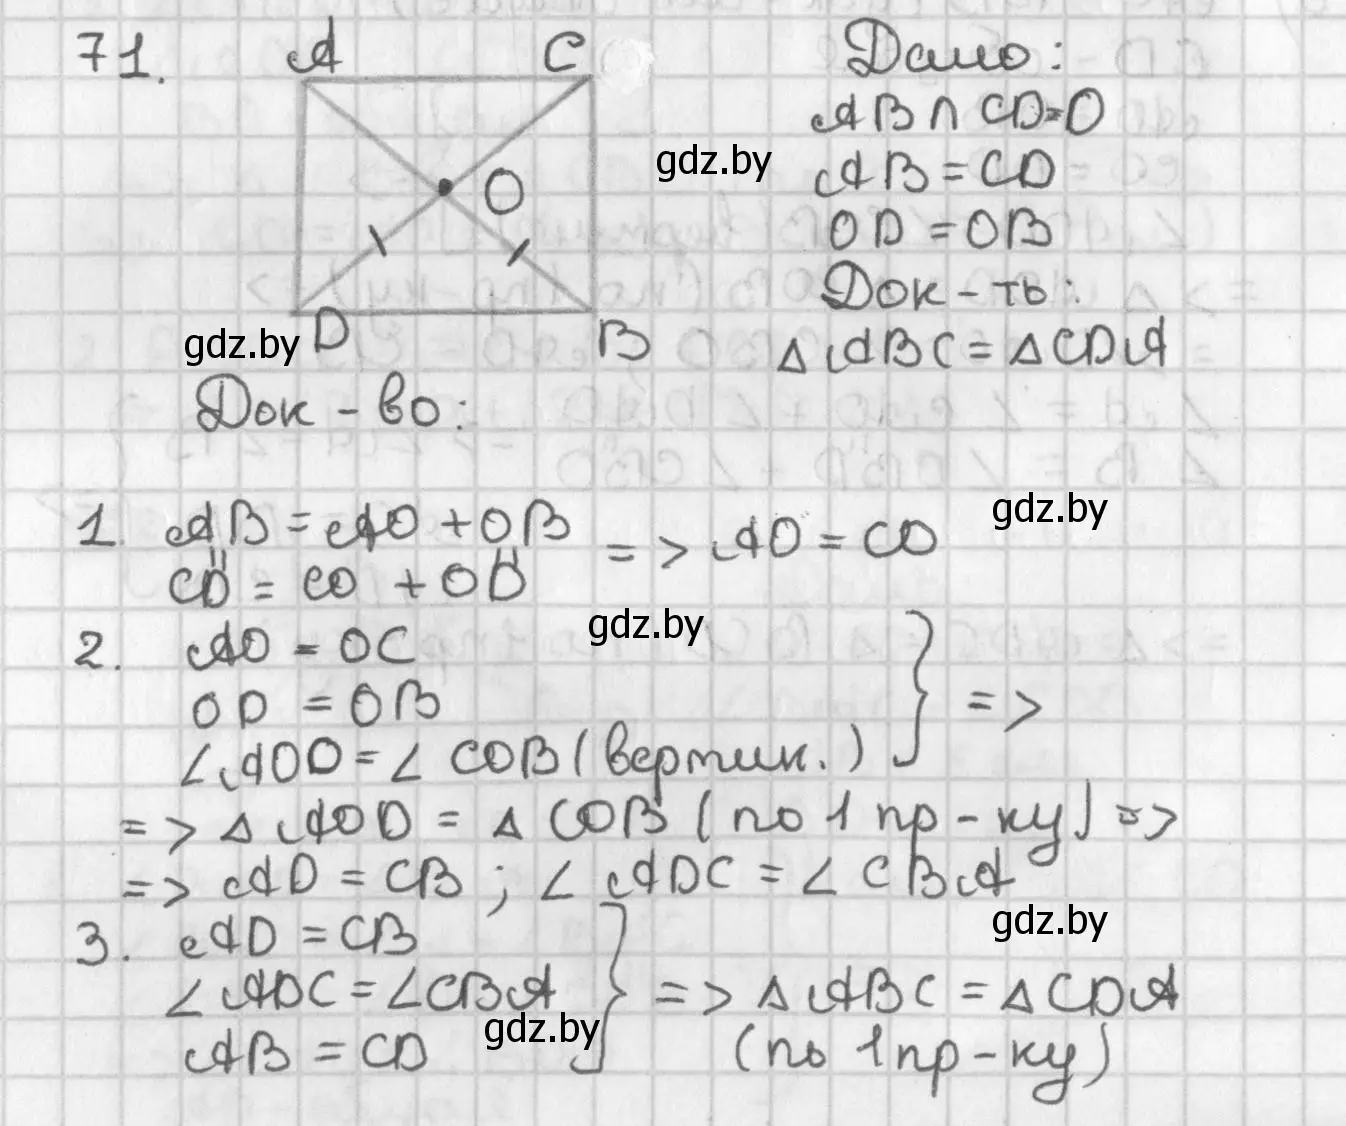 71.
A C
O
D B
Дано:
AB ∩ CD = O
AB = CD
OD = OB
Док-ть:
△ABC = △CDA
gdz.by
gdz.by
Док-во:
1. AB = AO + OB
CD = CO + OD
=> AO = CO
gdz.by
gdz.by
2. AO = OC
OD = OB
∠AOD = ∠COB (вертик.)
} =>
=> △AOD = △COB (по 1 пр-ку) =>
=> AD = CB ; ∠ADC = ∠CBA
gdz.by
3. AD = CB
∠ADC = ∠CBA
AB = CD
} => △ABC = △CDA
(по 1 пр-ку)
gdz.by